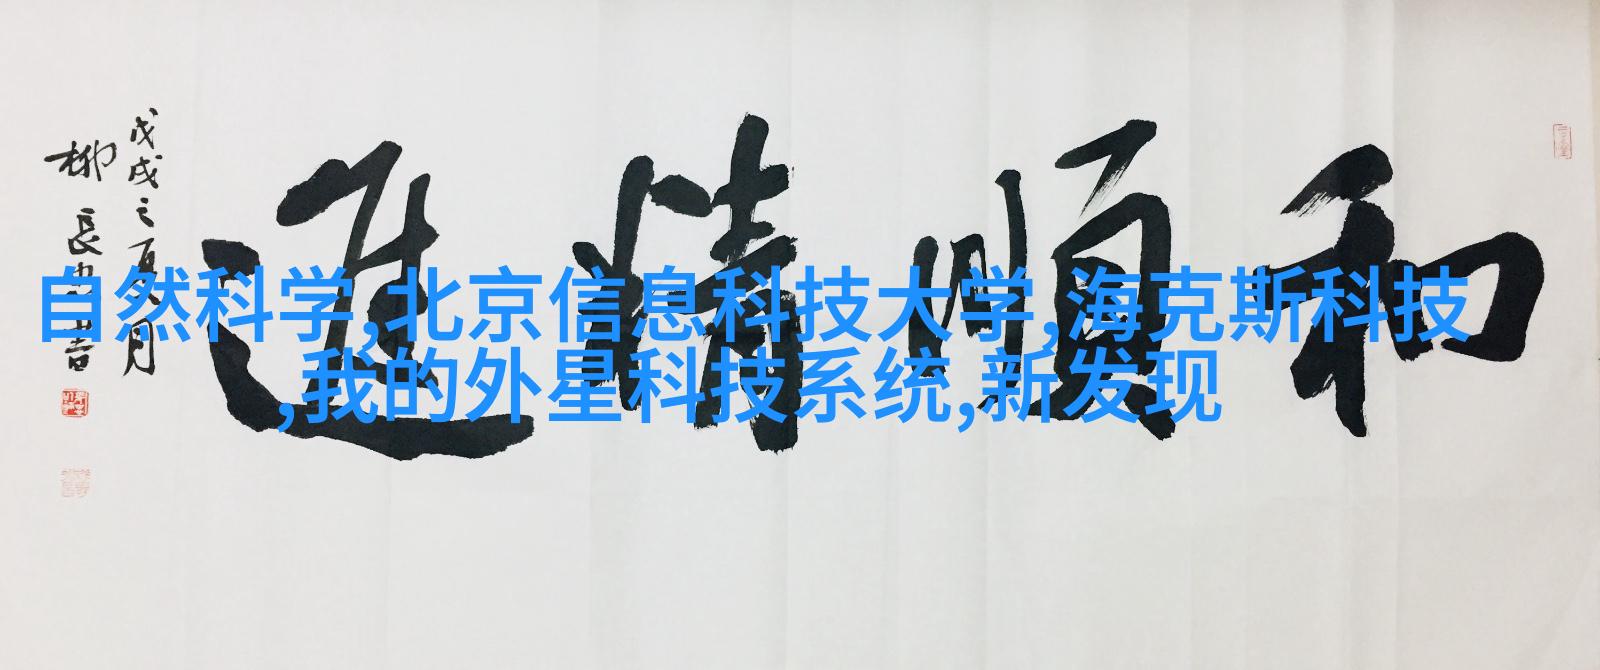 和順精進
戊戌之夏月
柳長
自然科学,北京信息科技大学,海克斯科技
,我的外星科技系统,新发现